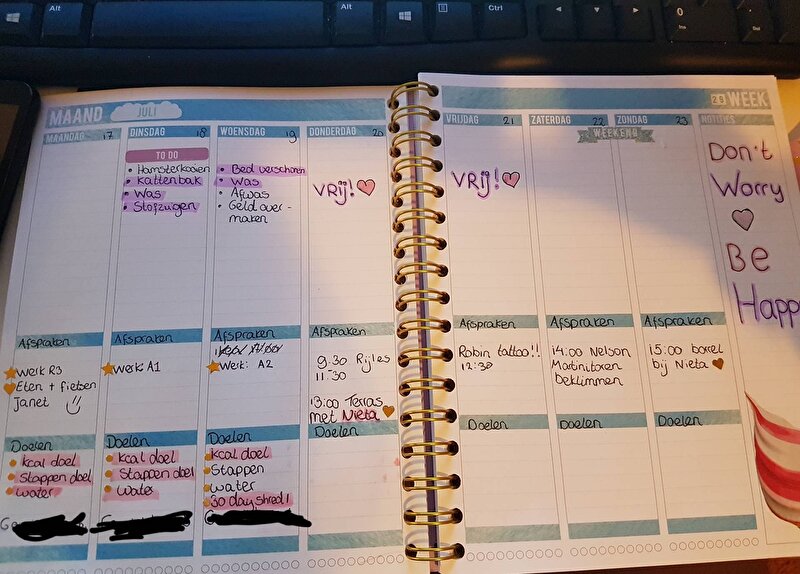 Alt
Alt
Ctrl
0
Ins
MAAND
JULI
MAANDAG 17
Afspraken
Werk R3
Eten + fietsen
Janet
Doelen
kcal doel
Stappen doel
water
DINSDAG 18
TO DO
• Hamsterkooien
• Kattenbak
• Was
• Stofzuigen
Afspraken
Werk A1
Doelen
kcal doel
Stappen doel
water
WOENSDAG 19
• Bed verschonen
• Was
• Afwas
• Geld over-
maken
Afspraken
Werk: A2
Doelen
kcal doel
Stappen
water
30 day shred!
DONDERDAG 20
VRIJ!
Afspraken
9:30 Rijles
11:30
13:00 Terras
met Nieta
Doelen
VRIJDAG 21
VRIJ!
Afspraken
Robin tattoo!!
12:30
Doelen
ZATERDAG 22
WEEKEND
Afspraken
14:00 Nelson
Martinitoren
beklimmen
Doelen
ZONDAG 23
Afspraken
15:00 borrel
bij Nieta
Doelen
WEEK
NOTITIES
Don't
Worry
Be
Happ